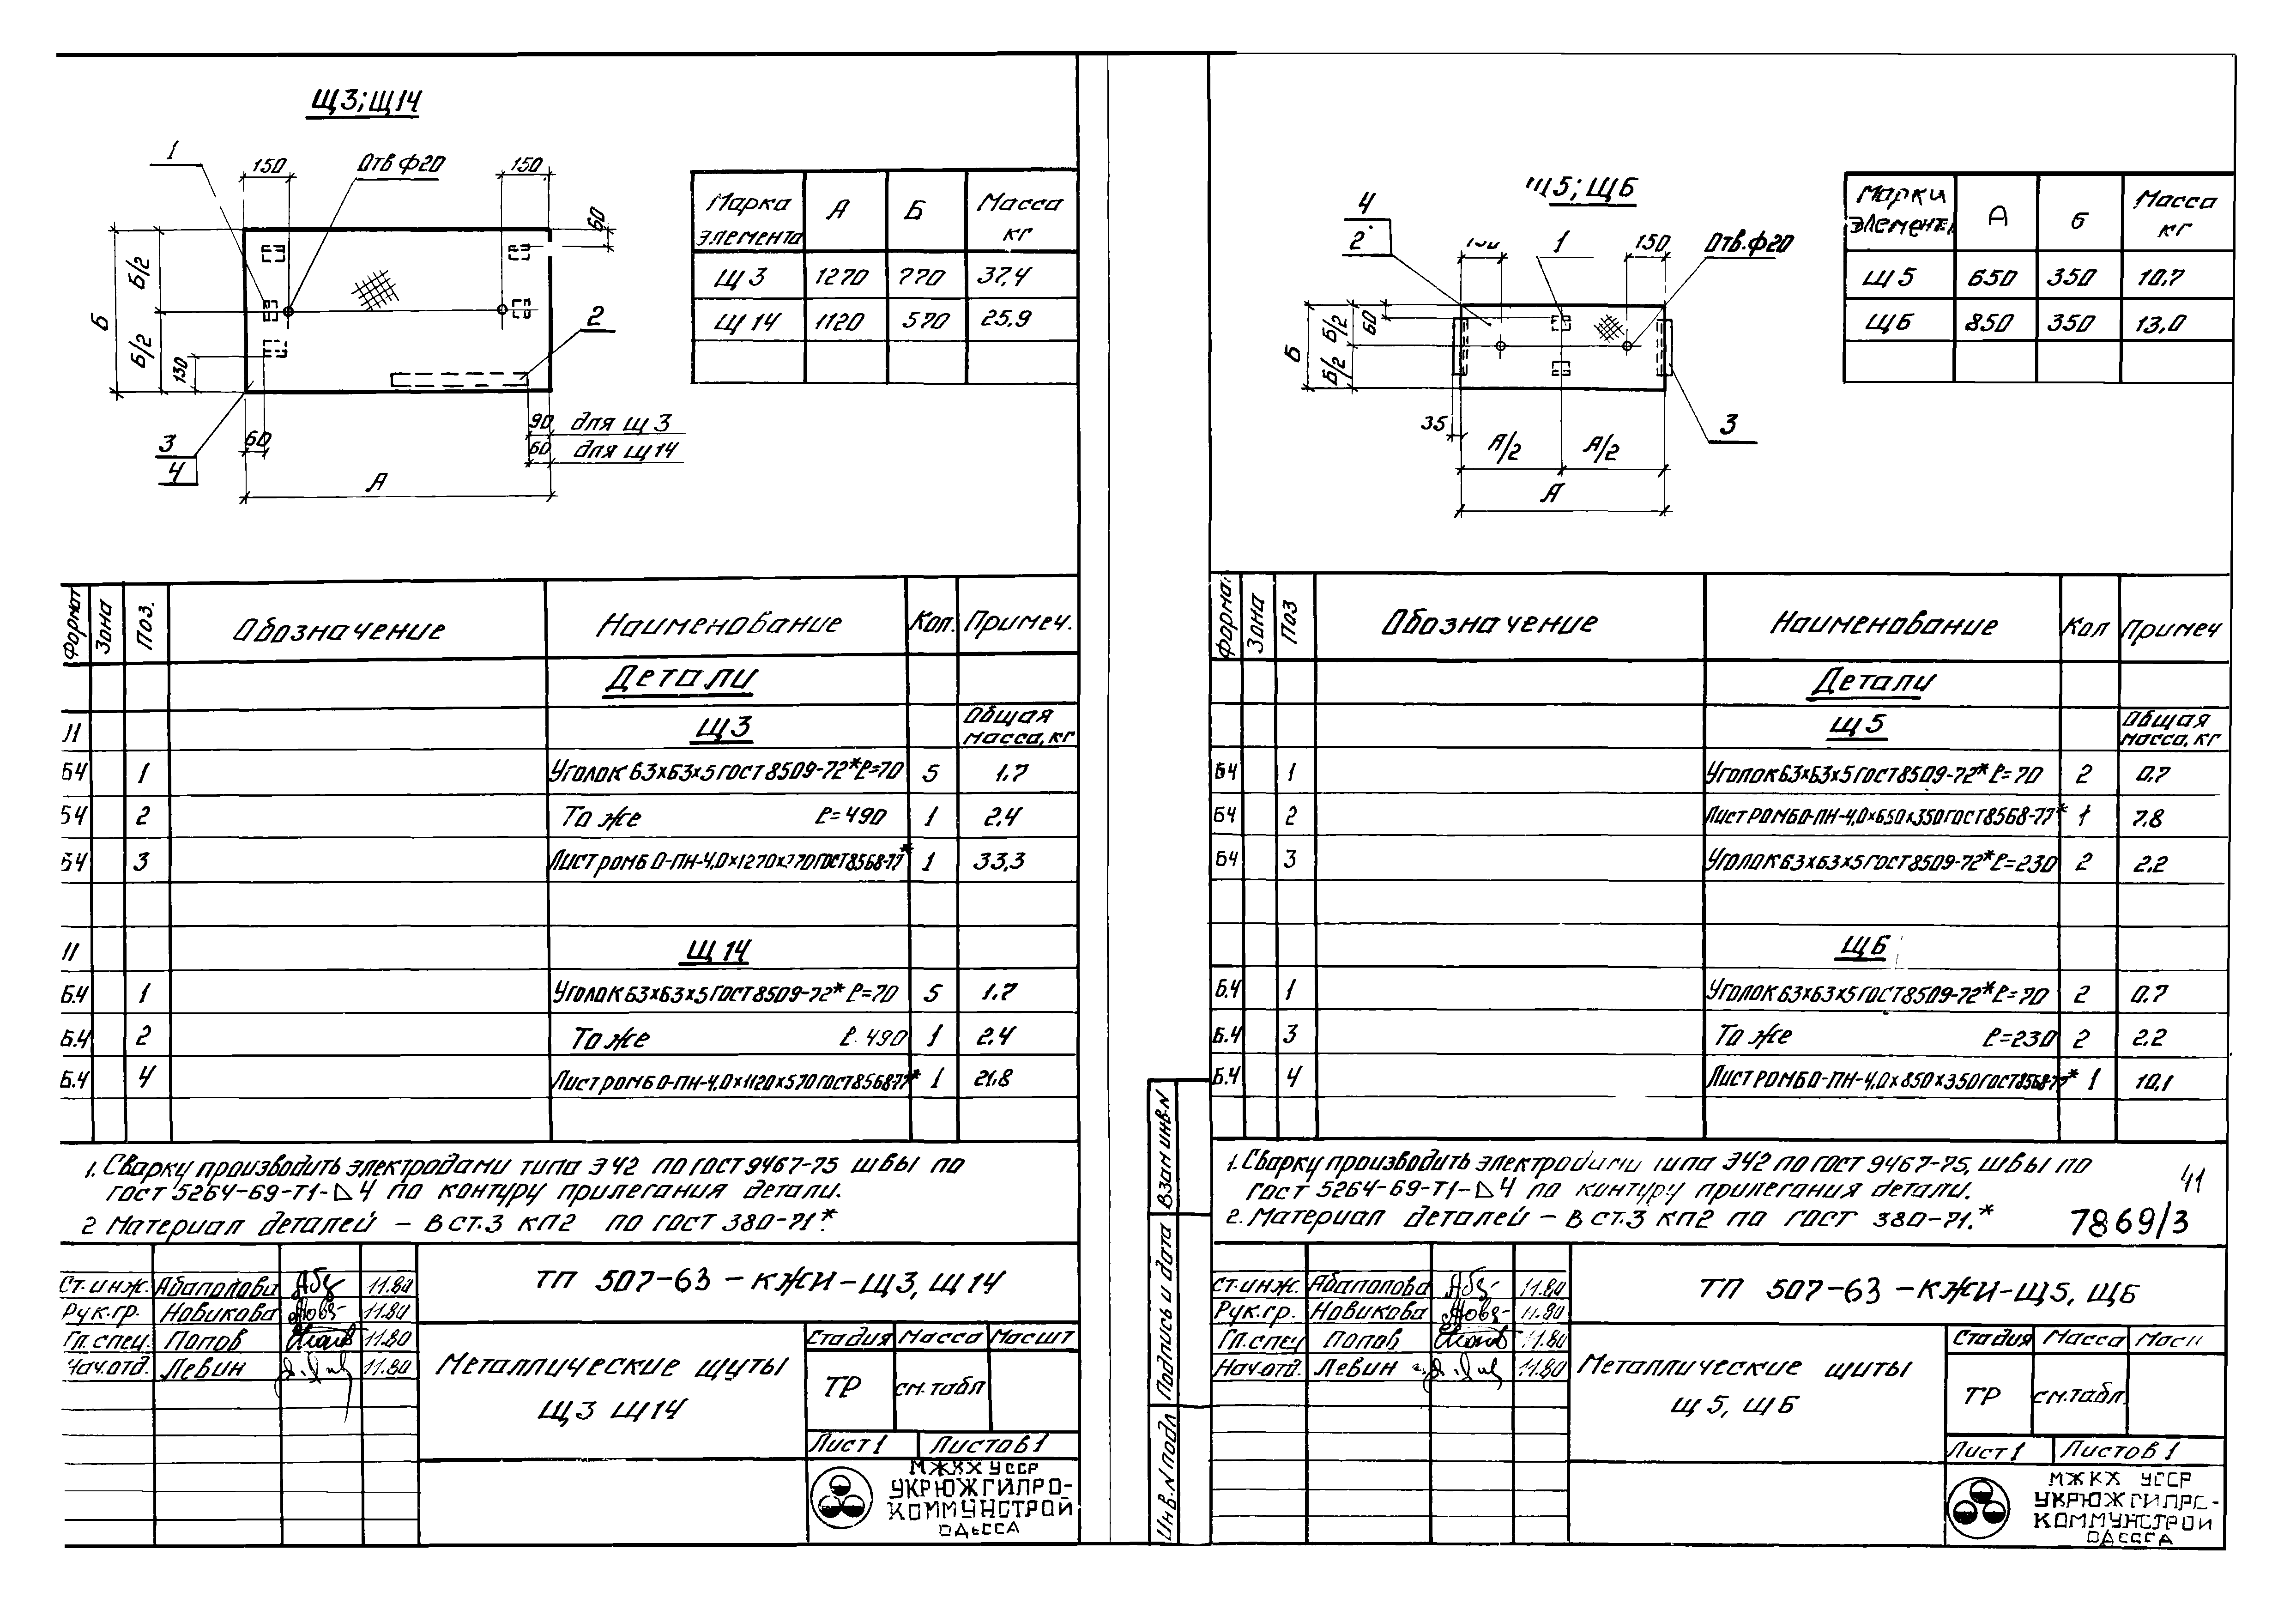 Щ3; Щ14
1
150
Отв ф20
150
60
Б/2
Б
Б/2
130
2
3
4
60
90 для Щ3
60 для Щ14
А
Марка элемента А Б Масса кг
Щ3 1270 770 37,4
Щ14 1120 570 25,9
Формат Зона Поз. Обозначение Наименование Кол. Примеч.
Детали
11 Щ3 Общая масса, кг
Б4 1 Уголок 63х63х5 ГОСТ 8509-72* ℓ=70 5 1,7
Б4 2 То же ℓ=490 1 2,4
Б4 3 Лист ромб О-ПН-4,0х1270х770 ГОСТ 8568-77* 1 33,3
11 Щ14
Б.4 1 Уголок 63х63х5 ГОСТ 8509-72* ℓ=70 5 1,7
Б.4 2 То же ℓ 490 1 2,4
Б.4 4 Лист ромб О-ПН-4,0х1120х570 ГОСТ 8568-77* 1 21,8
1. Сварку производить электродами типа Э42 по ГОСТ 9467-75 швы по
ГОСТ 5264-69-Т1-⊿4 по контуру прилегания детали.
2 Материал деталей – В ст.3 кп2 по ГОСТ 380-71.*
ТП 507-63-КЖИ-Щ3, Щ14
Ст.инж. Абаполова 11.80
Рук.гр. Новикова 11.80
Гл.спец. Попов 11.80
Нач.отд. Левин 11.80
Металлические щиты
Щ3 Щ14
Стадия Масса Масшт
ТР см.табл.
Лист 1 Листов 1
МЖКХ УССР
УКРЮЖГИПРО-
КОММУНСТРОЙ
ОДЕССА
Щ5; Щ6
4
2
150
1
150
Отв. ф20
Б
Б/2
Б/2
60
35
А/2
А/2
А
3
Марки элемент А Б Масса кг
Щ5 650 350 10,7
Щ6 850 350 13,0
Формат Зона Поз Обозначение Наименование Кол Примеч
Детали
Щ5 Общая масса, кг
Б4 1 Уголок 63х63х5 ГОСТ 8509-72* ℓ=70 2 0,7
Б4 2 Лист ромб О-ПН-4,0х650х350 ГОСТ 8568-77* 1 7,8
Б4 3 Уголок 63х63х5 ГОСТ 8509-72* ℓ=230 2 2,2
Щ6
Б.4 1 Уголок 63х63х5 ГОСТ 8509-72* ℓ=70 2 0,7
Б.4 3 То же ℓ=230 2 2,2
Б.4 4 Лист ромб О-ПН-4,0х850х350 ГОСТ 8568-77* 1 10,1
1. Сварку производить электродами типа Э42 по ГОСТ 9467-75, швы по
ГОСТ 5264-69-Т1-⊿4 по контуру прилегания детали.
2. Материал деталей – В ст.3 кп2 по ГОСТ 380-71.*
41
7869/3
Взам инв.N
Подпись и дата
Инв.N подл
ТП 507-63-КЖИ-Щ5, Щ6
Ст.инж. Абаполова 11.80
Рук.гр. Новикова 11.80
Гл.спец Попов 11.80
Нач.отд. Левин 11.80
Металлические щиты
Щ5, Щ6
Стадия Масса Масш
ТР см.табл.
Лист 1 Листов 1
МЖКХ УССР
УКРЮЖГИПРО-
КОММУНСТРОЙ
ОДЕССА